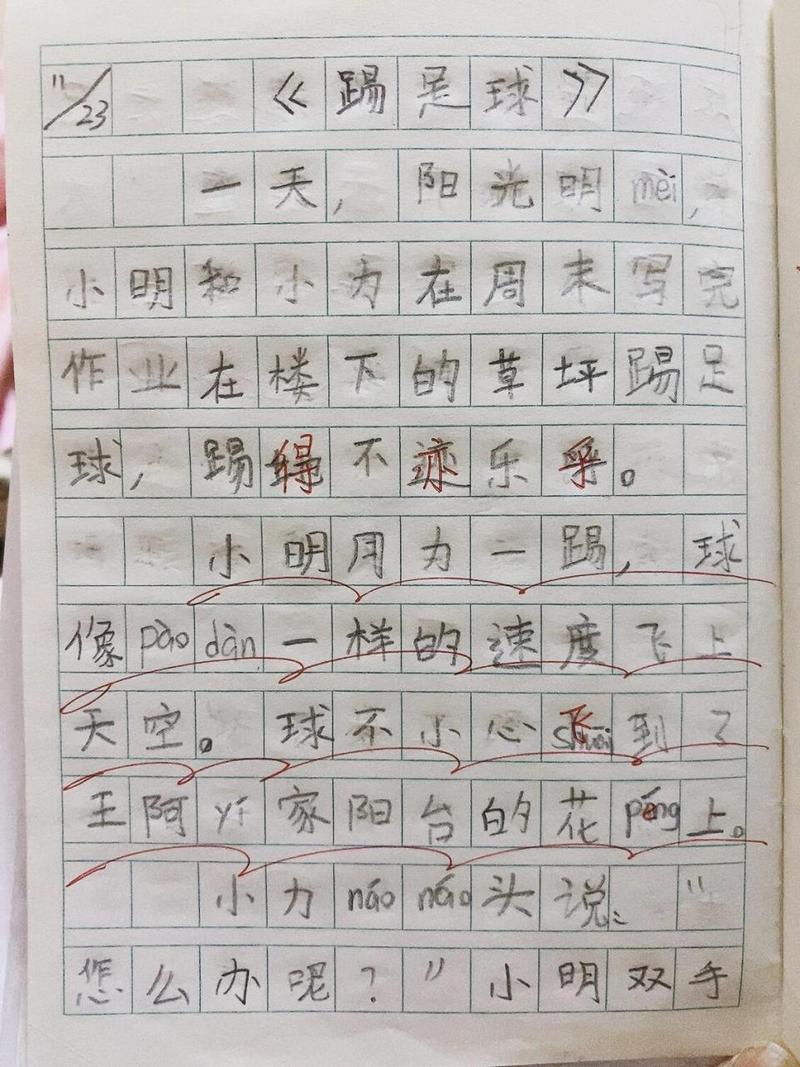 11/23 《踢足球》
一天，阳光明mèi，
小明和小力在周末写完
作业在楼下的草坪踢足
球，踢得不亦乐乎。
小明用力一踢，球
像pào dàn一样的速度飞上
天空。球不小心飞到了
王阿yí家阳台的花péng上。
小力náo náo头说：“
怎么办呢？”小明双手